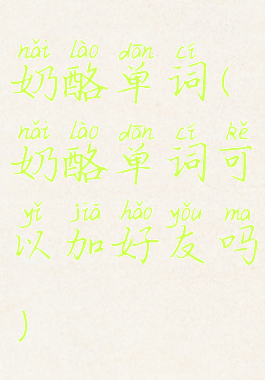 nǎi lào dān cí
奶酪单词(
nǎi lào dān cí kě
奶酪单词可
yǐ jiā hǎo yǒu ma
以加好友吗
)